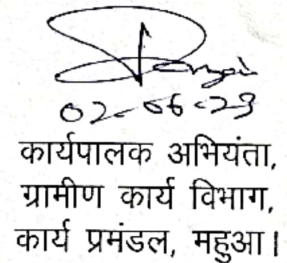 02-06-23
कार्यपालक अभियंता,
ग्रामीण कार्य विभाग,
कार्य प्रमंडल, महुआ।